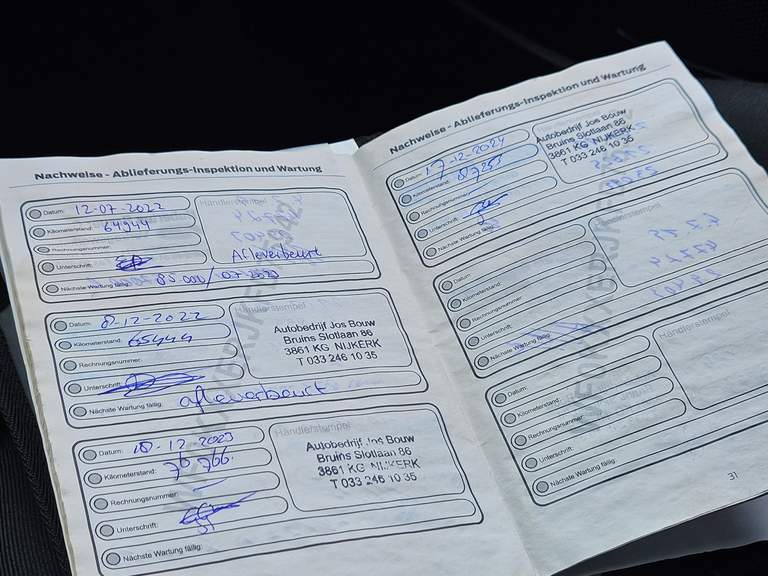 Nachweise - Ablieferungs-Inspektion und Wartung
Datum: 12-07-2022
Kilometerstand: 64944
Rechnungsnummer:
Unterschrift:
Händlerstempel
Afleverbeurt
Nächste Wartung fällig: 85000/07-2023
Datum: 8-12-2022
Kilometerstand: 65444
Rechnungsnummer:
Unterschrift:
Händlerstempel
Autobedrijf Jos Bouw
Bruins Slotlaan 86
3861 KG NIJKERK
T 033 246 10 35
Nächste Wartung fällig: afleverbeurt
Datum: 18-12-2023
Kilometerstand: 76766.
Rechnungsnummer:
Unterschrift:
Händlerstempel
Autobedrijf Jos Bouw
Bruins Slotlaan 86
3861 KG NIJKERK
T 033 246 10 35
Nächste Wartung fällig:
Nachweise - Ablieferungs-Inspektion und Wartung
Datum: 17-12-2024
Kilometerstand: 87253
Rechnungsnummer:
Unterschrift:
Autobedrijf Jos Bouw
Bruins Slotlaan 86
3861 KG NIJKERK
T 033 246 10 35
Nächste Wartung fällig
Datum:
Kilometerstand:
Rechnungsnummer:
Unterschrift:
Händlerstempel
Nächste Wartung fällig:
Datum:
Kilometerstand:
Rechnungsnummer:
Unterschrift:
Händlerstempel
Nächste Wartung fällig
31